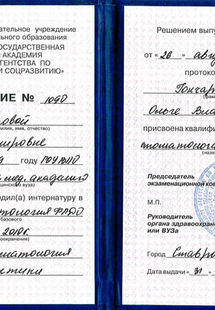 ательное учреждение
ального образования
ОСУДАРСТВЕННАЯ
АКАДЕМИЯ
ГЕНТСТВА ПО
И СОЦРАЗВИТИЮ»
ИЕ № 1090
овой
милия, имя, отчество)
ировне
году
мед. академию
инского вуза)
одил(а) интернатуру в
2010г.
оохранения)
матология
Решением выпу
от «26» авгу
протоко
Гончар
Ольге Вла
присвоена квалифи
стоматолог
Председатель
экзаменационной ко
М.П.
Руководитель
органа здравоохране
или ВУЗа
Город Ставро
Дата выдачи «31»